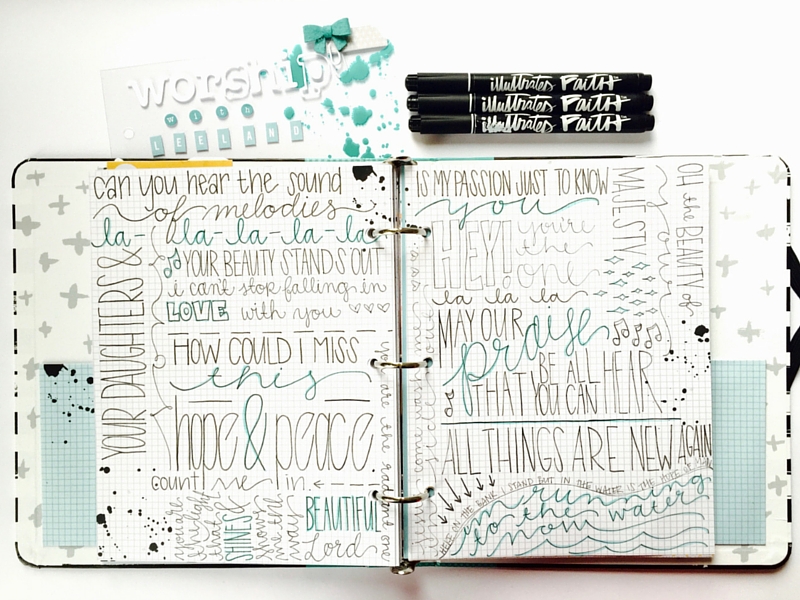 worship
with
LEELAND
illustrates FAITH
illustrates FAITH
illustrates FAITH
can you hear the sound
of melodies
la- la-la-la-la
YOUR DAUGHTERS &
YOUR BEAUTY STANDS OUT
i can't stop falling in
LOVE with you
HOW COULD I MISS
this
hope & peace
count me in
you are the radiant one
you are
the light
that
SHINES &
shows
me the
way
BEAUTIFUL
Lord
IS MY PASSION JUST TO KNOW
you
HEY! you're
the
one
la la la la
MAY OUR
praise
THAT BE ALL
YOU CAN HEAR
MAJESTY
your
OH the BEAUTY of
ALL THINGS ARE NEW AGAIN
STAND BUT IN THE WATER IS THE
i'm running
to the
water